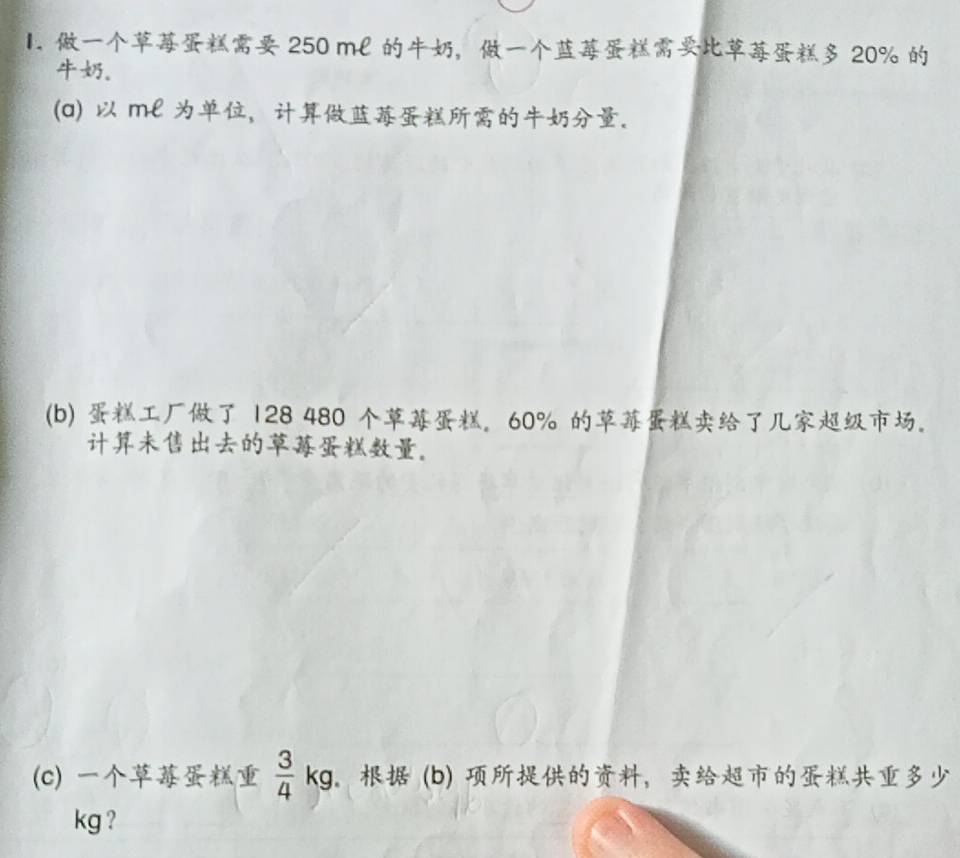 1. 做一个草莓蛋糕需要 250 mℓ 的牛奶，做一个蓝莓蛋糕需要比草莓蛋糕多 20% 的
牛奶。
(a) 以 mℓ 为单位，计算做蓝莓蛋糕所需的牛奶分量。
(b) 蛋糕工厂做了 128 480 个草莓蛋糕。60% 的草莓蛋糕卖给了几家超级市场。
计算未售出去的草莓蛋糕数量。
(c) 一个草莓蛋糕重 3/4 kg。根据 (b) 项所提供的资料，卖给超市的蛋糕共重多少
kg？